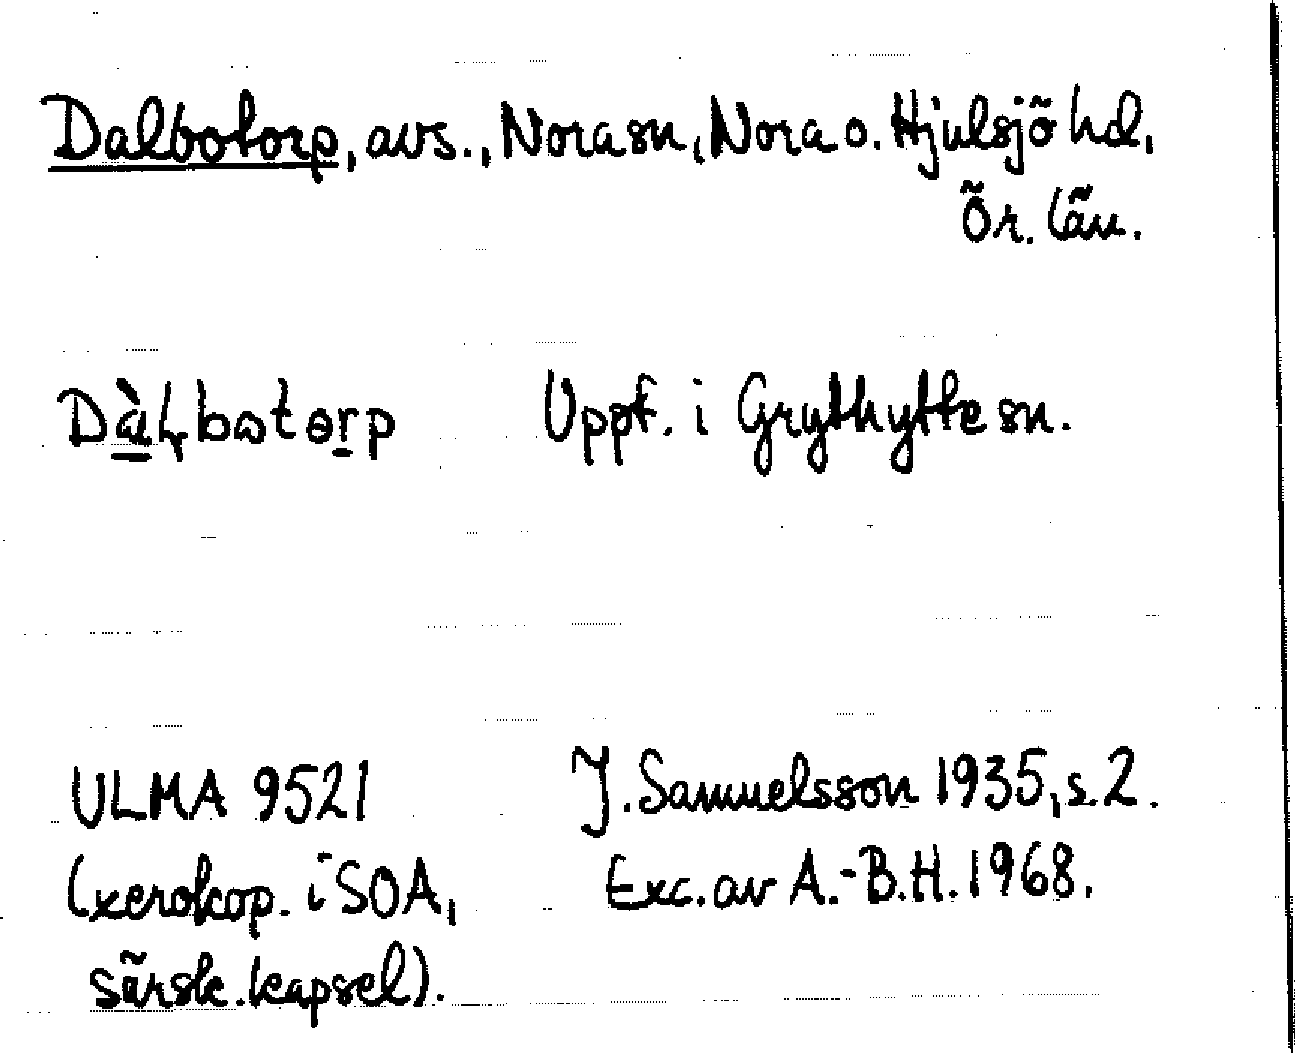 Dalbotorp, avs., Nora sn, Nora o. Hjulsjö hd,
Ör. län.
Uppt. i Grythytte sn.
ULMA 9521 J. Samuelsson 1935, s. 2.
(xerokop. i SOA, Exc. av A.-B.H. 1968.
särsk. kapsel).